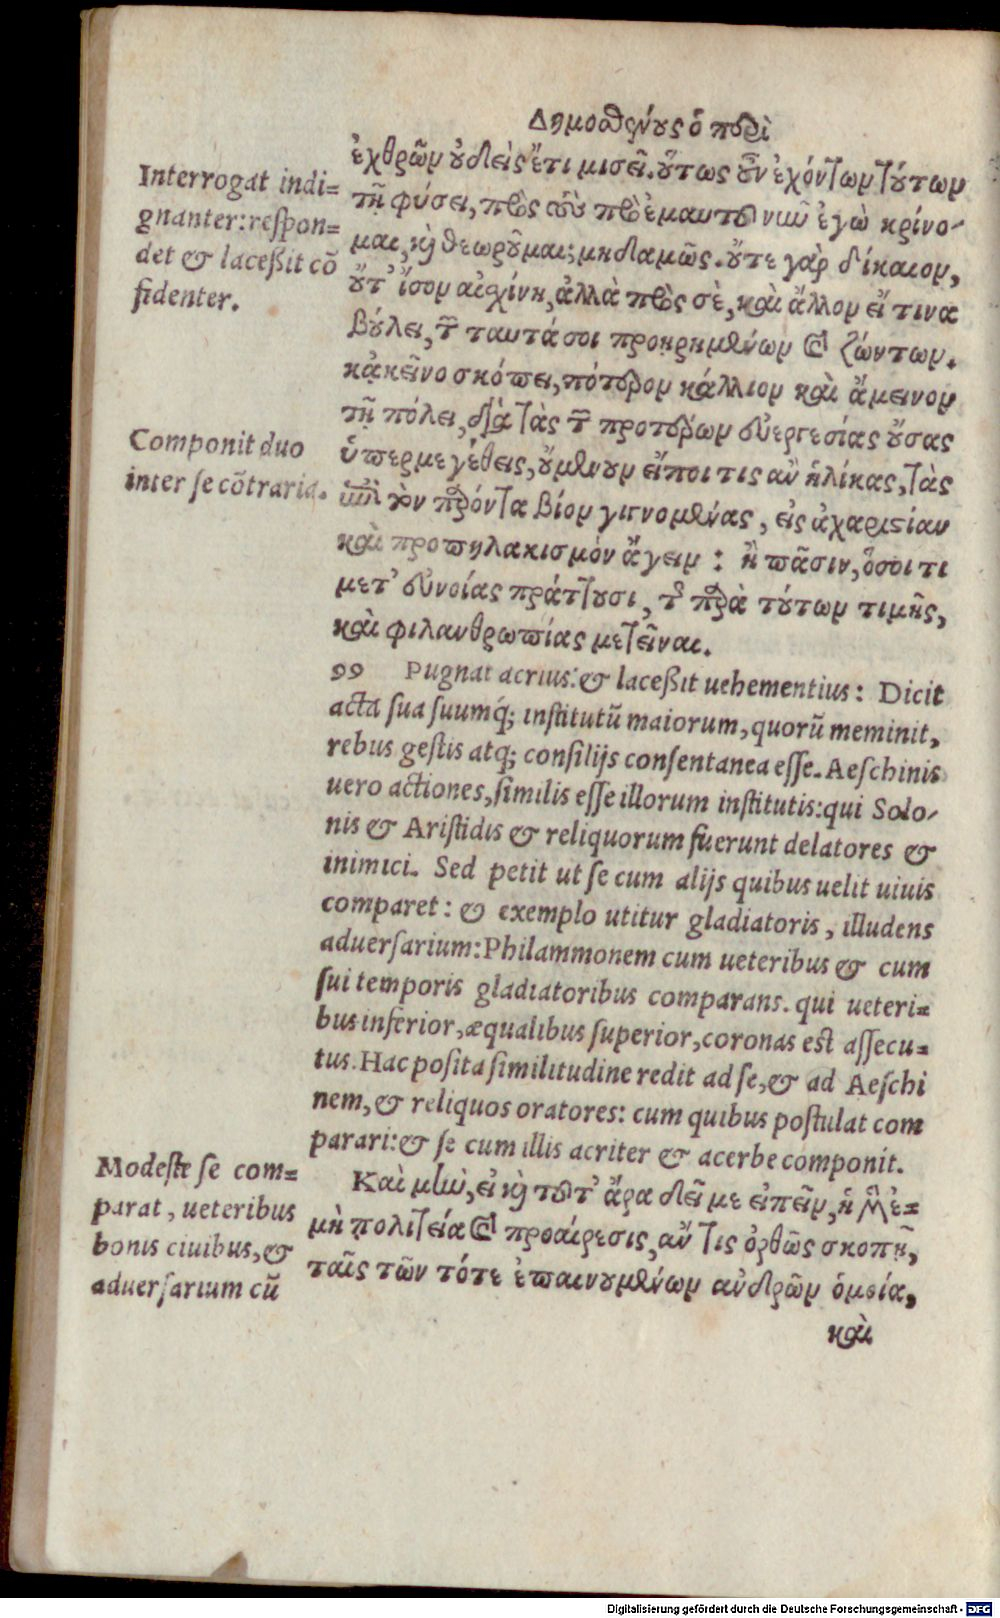 Δημοσθένους ὁ περὶ
Interrogat indi=
gnanter: respon=
det & laceßit cõ
fidenter.
ἐχθρῶν οὐδεὶς ἔτι μισεῖ. οὕτως οὖν ἐχόντων τούτων
τῇ φύσει, πρὸς τοὺς πρὸ ἐμαυτοῦ νῦν ἐγὼ κρίνο-
μαι, καὶ θεωροῦμαι; μηδαμῶς. οὔτε γὰρ δίκαιον,
οὔτ' ἴσον αἰσχίνη, ἀλλὰ πρὸς σὲ, καὶ ἄλλον εἴ τινα
βούλει, τῶν ταυτά σοι προῃρημένων καὶ ζώντων.
κἀκεῖνο σκόπει, πότερον κάλλιον καὶ ἄμεινον
Componit duo
inter se cõtraria.
τῇ πόλει, διὰ τὰς τῶν προτέρων εὐεργεσίας οὔσας
ὑπερμεγέθεις, οὐ μὲν οὖν εἴποι τις ἂν ἡλίκας, τὰς
ἐπὶ τὸν παρόντα βίον γιγνομένας, εἰς ἀχαριστίαν
καὶ προπηλακισμὸν ἄγειν: ἢ πᾶσιν, ὅσοι τι
μετ' εὐνοίας πράττουσι, τῆς παρὰ τούτων τιμῆς,
καὶ φιλανθρωπίας μετεῖναι.
99 Pugnat acrius: & laceßit uehementius: Dicit
acta sua suumq́; institutũ maiorum, quorũ meminit,
rebus gestis atq́; consilijs consentanea esse. Aeschinis
uero actiones, similis esse illorum institutis: qui Solo-
nis & Aristidis & reliquorum fuerunt delatores &
inimici. Sed petit ut se cum alijs quibus uelit uiuis
comparet: & exemplo utitur gladiatoris, illudens
aduersarium: Philammonem cum ueteribus & cum
sui temporis gladiatoribus comparans. qui ueteri=
bus inferior, æqualibus superior, coronas est assecu=
tus. Hac posita similitudine redit ad se, & ad Aeschi
nem, & reliquos oratores: cum quibus postulat com
parari: & se cum illis acriter & acerbe componit.
Modeste se com=
parat, ueteribus
bonis ciuibus, &
aduersarium cũ
Καὶ μὴν, εἰ καὶ τοῦτ' ἄρα δεῖ με εἰπεῖν, ἡ μὲν ἐ=
μὴ πολιτεία καὶ προαίρεσις, ἄν τις ὀρθῶς σκοπῇ,
ταῖς τῶν τότε ἐπαινουμένων ἀνδρῶν ὁμοία,
καὶ
Digitalisierung gefördert durch die Deutsche Forschungsgemeinschaft - DFG